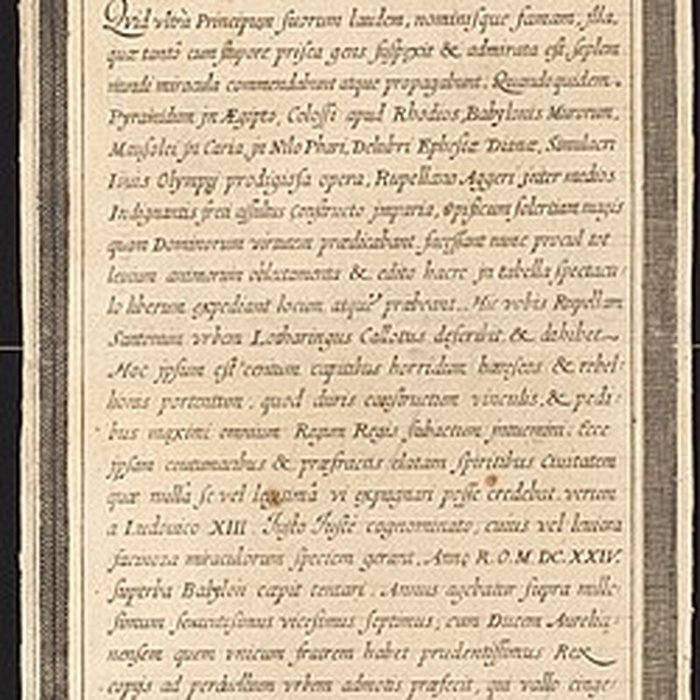 Quid vltra Principum suorum laudem, nominisque famam, illa,
quæ tantò cum stupore prisca gens suspexit & admirata est septem
mundi miracula commendabunt atque propagabunt. Quandoquidem
Pyramidum jn Ægipto, Colossi apud Rhodios, Babylonis Murorum,
Mausolei jn Caria, jn Nilo Phari, Delubri Ephesiæ Dianæ, Simulacri
Iouis Olympij prodigiosa opera, Rupellano Aggeri jnter medios
Indignantis freti æstus constructo jmparia, opificum solertiam magis
quam Dominorum virtutem prædicabant. facessant nunc procul tot
leuium animorum oblectamenta & edito hacre jn tabella spectacu-
lo liberum expediant locum atque præbeant. Hic vobis Rupellam
Santonum vrbem Lotharingus Callotus describit & exhibet
Hoc jpsum est centum capitibus horridum hæreseos & rebel-
lionis portentum, quod duris constrictum vinculis, & pedi-
bus maximi omnium Regum Regis subactum jntuemini. Ecce
jpsam contumacibus & præfractis elatam spiritibus Ciuitatem
quæ nulla se vel legitima vi expugnari posse credebat. verum
a Ludouico XIII Justo Juste cognominato, cuius vel leuiora
facinora miraculorum speciem gerunt. Anno R. O. M. DC. XXIV.
superba Babylon cœpit tentari. Annus agebatur supra mille-
simum sexcentesimus vicesimus septimus; cum Ducem Aurelia-
nensem quem vnicum fratrem habet prudentissimus Rex
copijs ad perduellum vrbem admotis præfecit, qui vallo cinge-